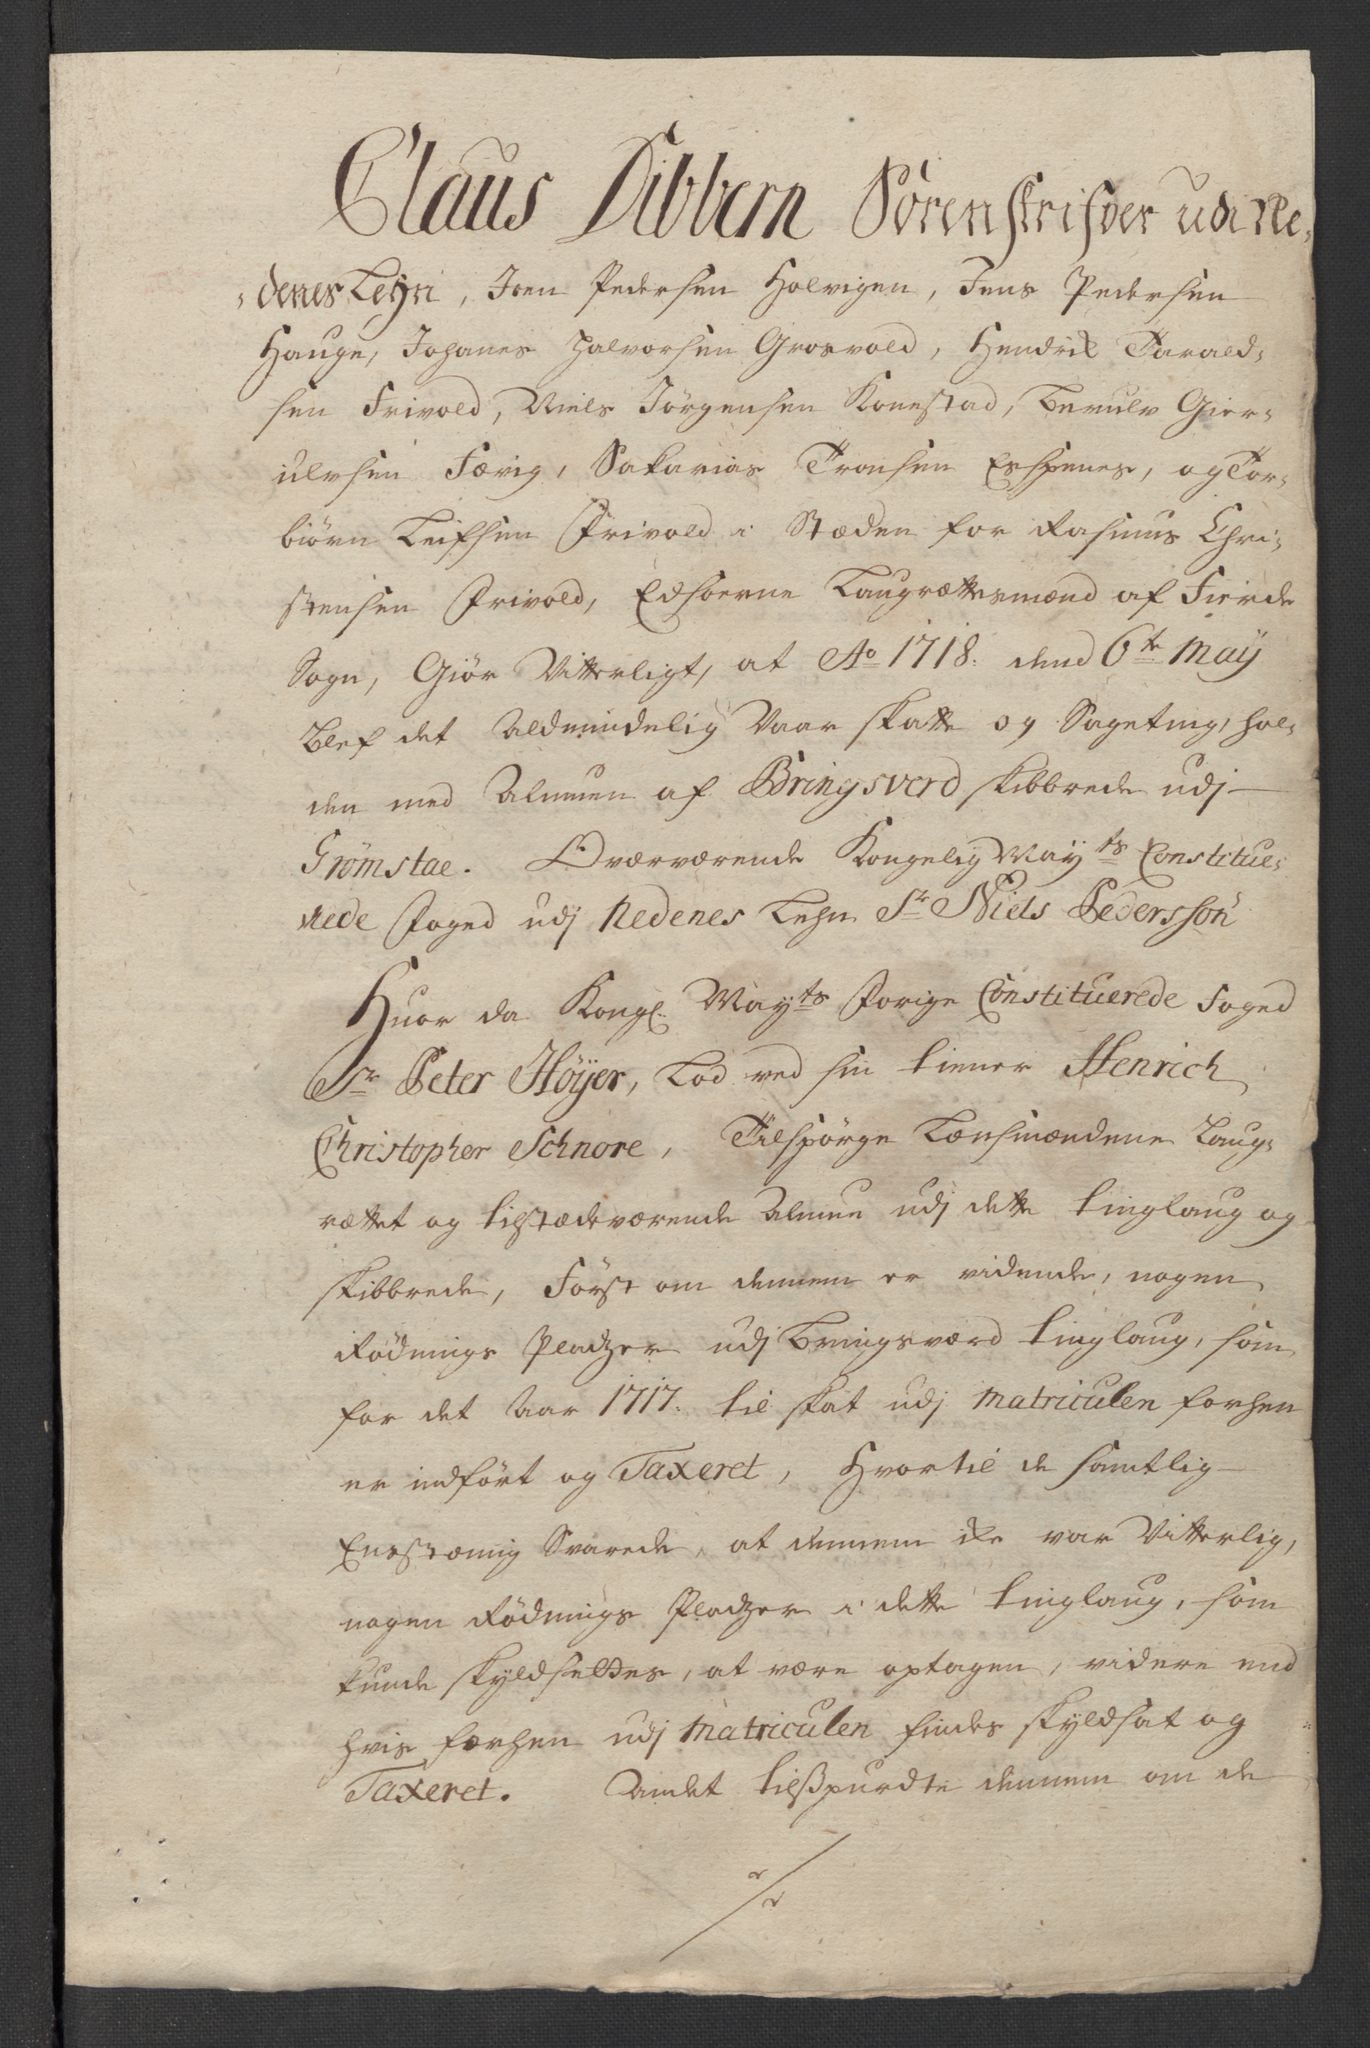 Claus Dibbern Sörenskrifver udi Ne,
,denes Lehn, Joen Pedersen Holvigen, Jens Pedersen
Hauge, Johanes Halvorsen Grosvold, Hendrik Tarald,
sen Frivold, Niels Jörgensen Konestad, Berulv Gier,
ulvsen Færvig, Sakarias Tronsen Espenes, og Tor,
biörn Leifsen Frivold i Stæden for Rasmus Chri,
stensen Frivold, Edsoerne Laugrættesmænd af Fierde
Sogn, Giör Vitterligt, at Ao 1718. dend 6te May
Blef det Aldmindelig Vaar skatte og Sageting, hol,
den med Almuen af Bringsverd skibbrede udj
Grömstae. Overværende Kongelig Mayts Constitue,
rede Foged udj Nedenes Lehn Sr Niels Pedersson
Huor da Kongl. Mayts Forige Constituerede Foged
Sr Peter Höyer, Lod ved sin tiener Henrich
Christopher Schnore, Tilspörge Lænsmændene Laug,
rættet og tilstædeværende Almue udj dette tinglaug og
skibbrede, Först om dennem er vidende, nogen
Rödnings Pladzer udj Bringsværd tinglaug, som
for det Aar 1717. til skat udj Matriculen forhen
er indfört og Taxeret, Hvortil de samtlig
Enstæmig Svarede, at dennem ike var Vitterlig,
nogen Rödnings Pladzer i dette tinglaug, som
kunde skyldsettes, at være optagen, videre end
hvis forhen udj Matriculen findes skyldsat og
Taxeret. Andet tilspurdte dennem om de